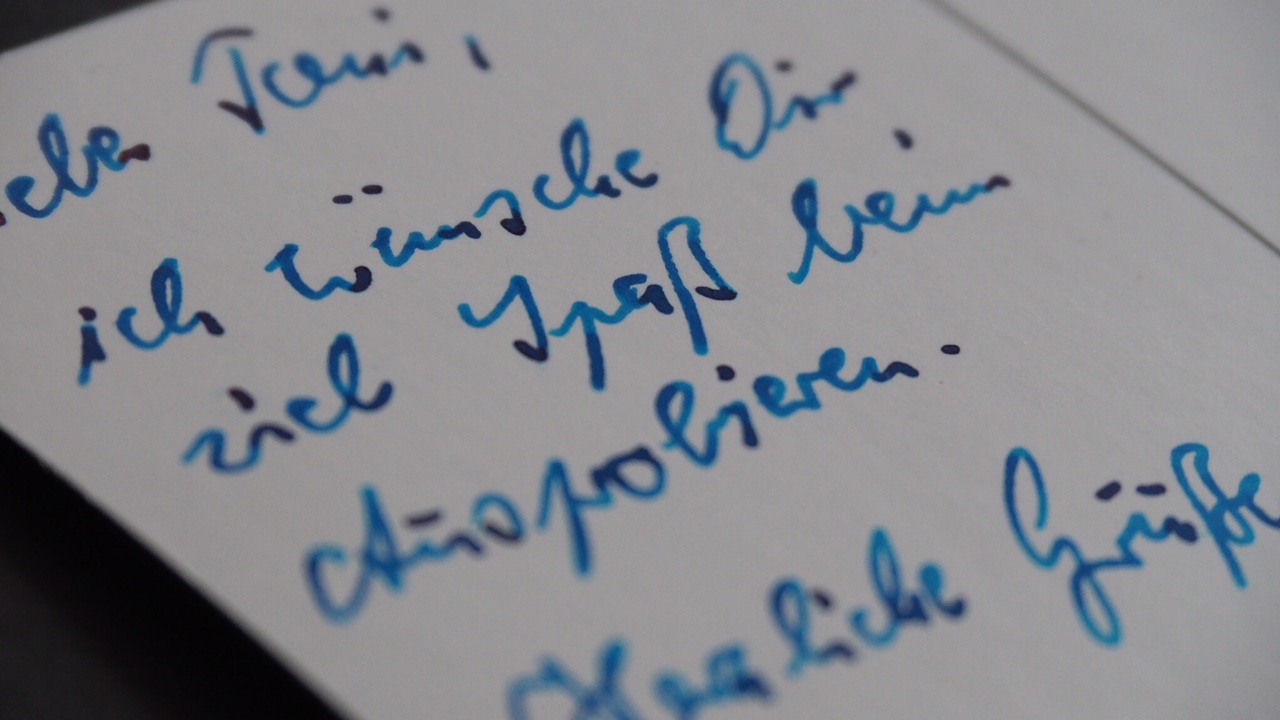 ieber Tomi,
ich wünsche Dir
viel Spaß beim
Ausprobieren.
Herzliche Grüße